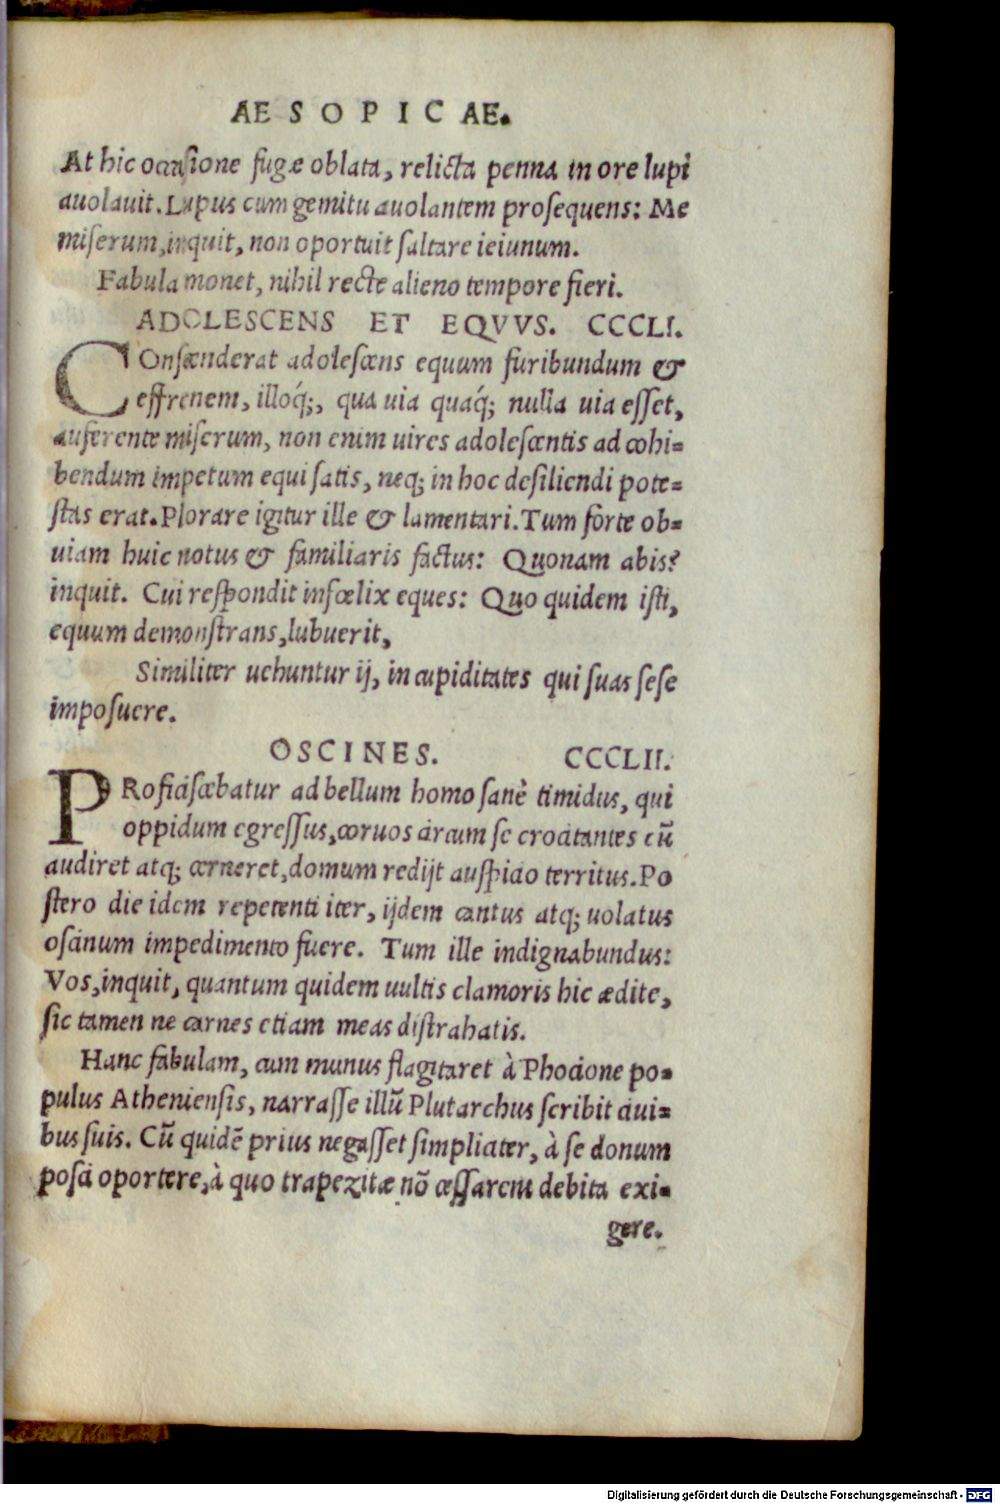 AESOPICAE.
At hic occasione fugæ oblata, relicta penna in ore lupi
auolauit. Lupus cum gemitu auolantem prosequens: Me
miserum, inquit, non oportuit saltare ieiunum.
Fabula monet, nihil recte alieno tempore fieri.
ADOLESCENS ET EQVVS. CCCLI.
COnscenderat adolescens equum furibundum &
effrenem, illoq́;, qua uia quaq́; nulla uia esset,
auferente miserum, non enim uires adolescentis ad cohi-
bendum impetum equi satis, neq; in hoc desiliendi pote-
stas erat. Plorare igitur ille & lamentari. Tum forte ob-
uiam huic notus & familiaris factus: Quonam abis?
inquit. Cui respondit infœlix eques: Quo quidem isti,
equum demonstrans, lubuerit,
Similiter uehuntur ij, in cupiditates qui suas sese
imposuere.
OSCINES. CCCLII.
PRoficiscebatur ad bellum homo sanè timidus, qui
oppidum egressus, coruos circum se crocitantes cũ
audiret atq; cerneret, domum redijt auspicio territus. Po
stero die idem repetenti iter, ijdem cantus atq; uolatus
oscinum impedimento fuere. Tum ille indignabundus:
Vos, inquit, quantum quidem uultis clamoris hic ædite,
sic tamen ne carnes etiam meas distrahatis.
Hanc fabulam, cum munus flagitaret à Phocione po-
pulus Atheniensis, narrasse illũ Plutarchus scribit ciui-
bus suis. Cũ quidẽ prius negasset simpliciter, à se donum
posci oportere, à quo trapezitæ nõ cessarent debita exi-
gere.
Digitalisierung gefördert durch die Deutsche Forschungsgemeinschaft - DFG